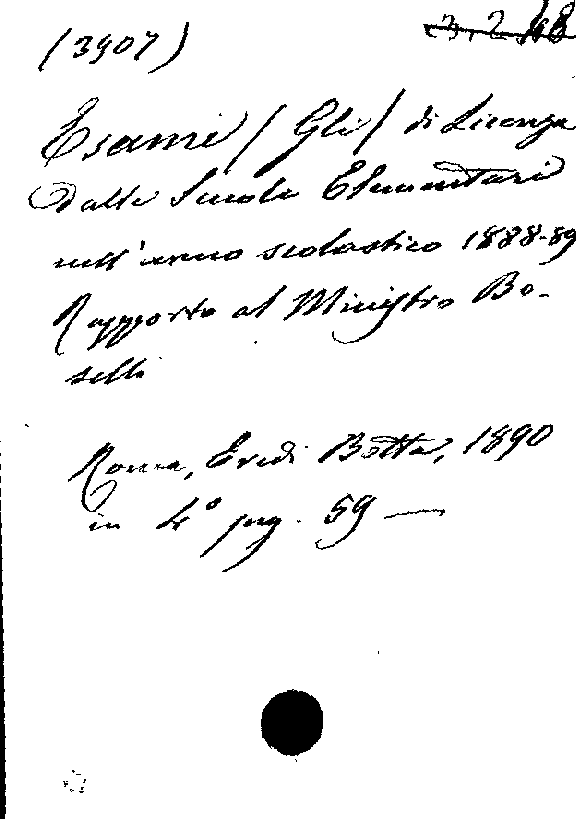 (3907)
Esami (Gli) di Licenza
dalle Scuole Elementari
nell'anno scolastico 1888-89
Rapporto al Ministro Bo-
selli
Roma, Eredi Botta, 1890
in 4° pag. 59 —